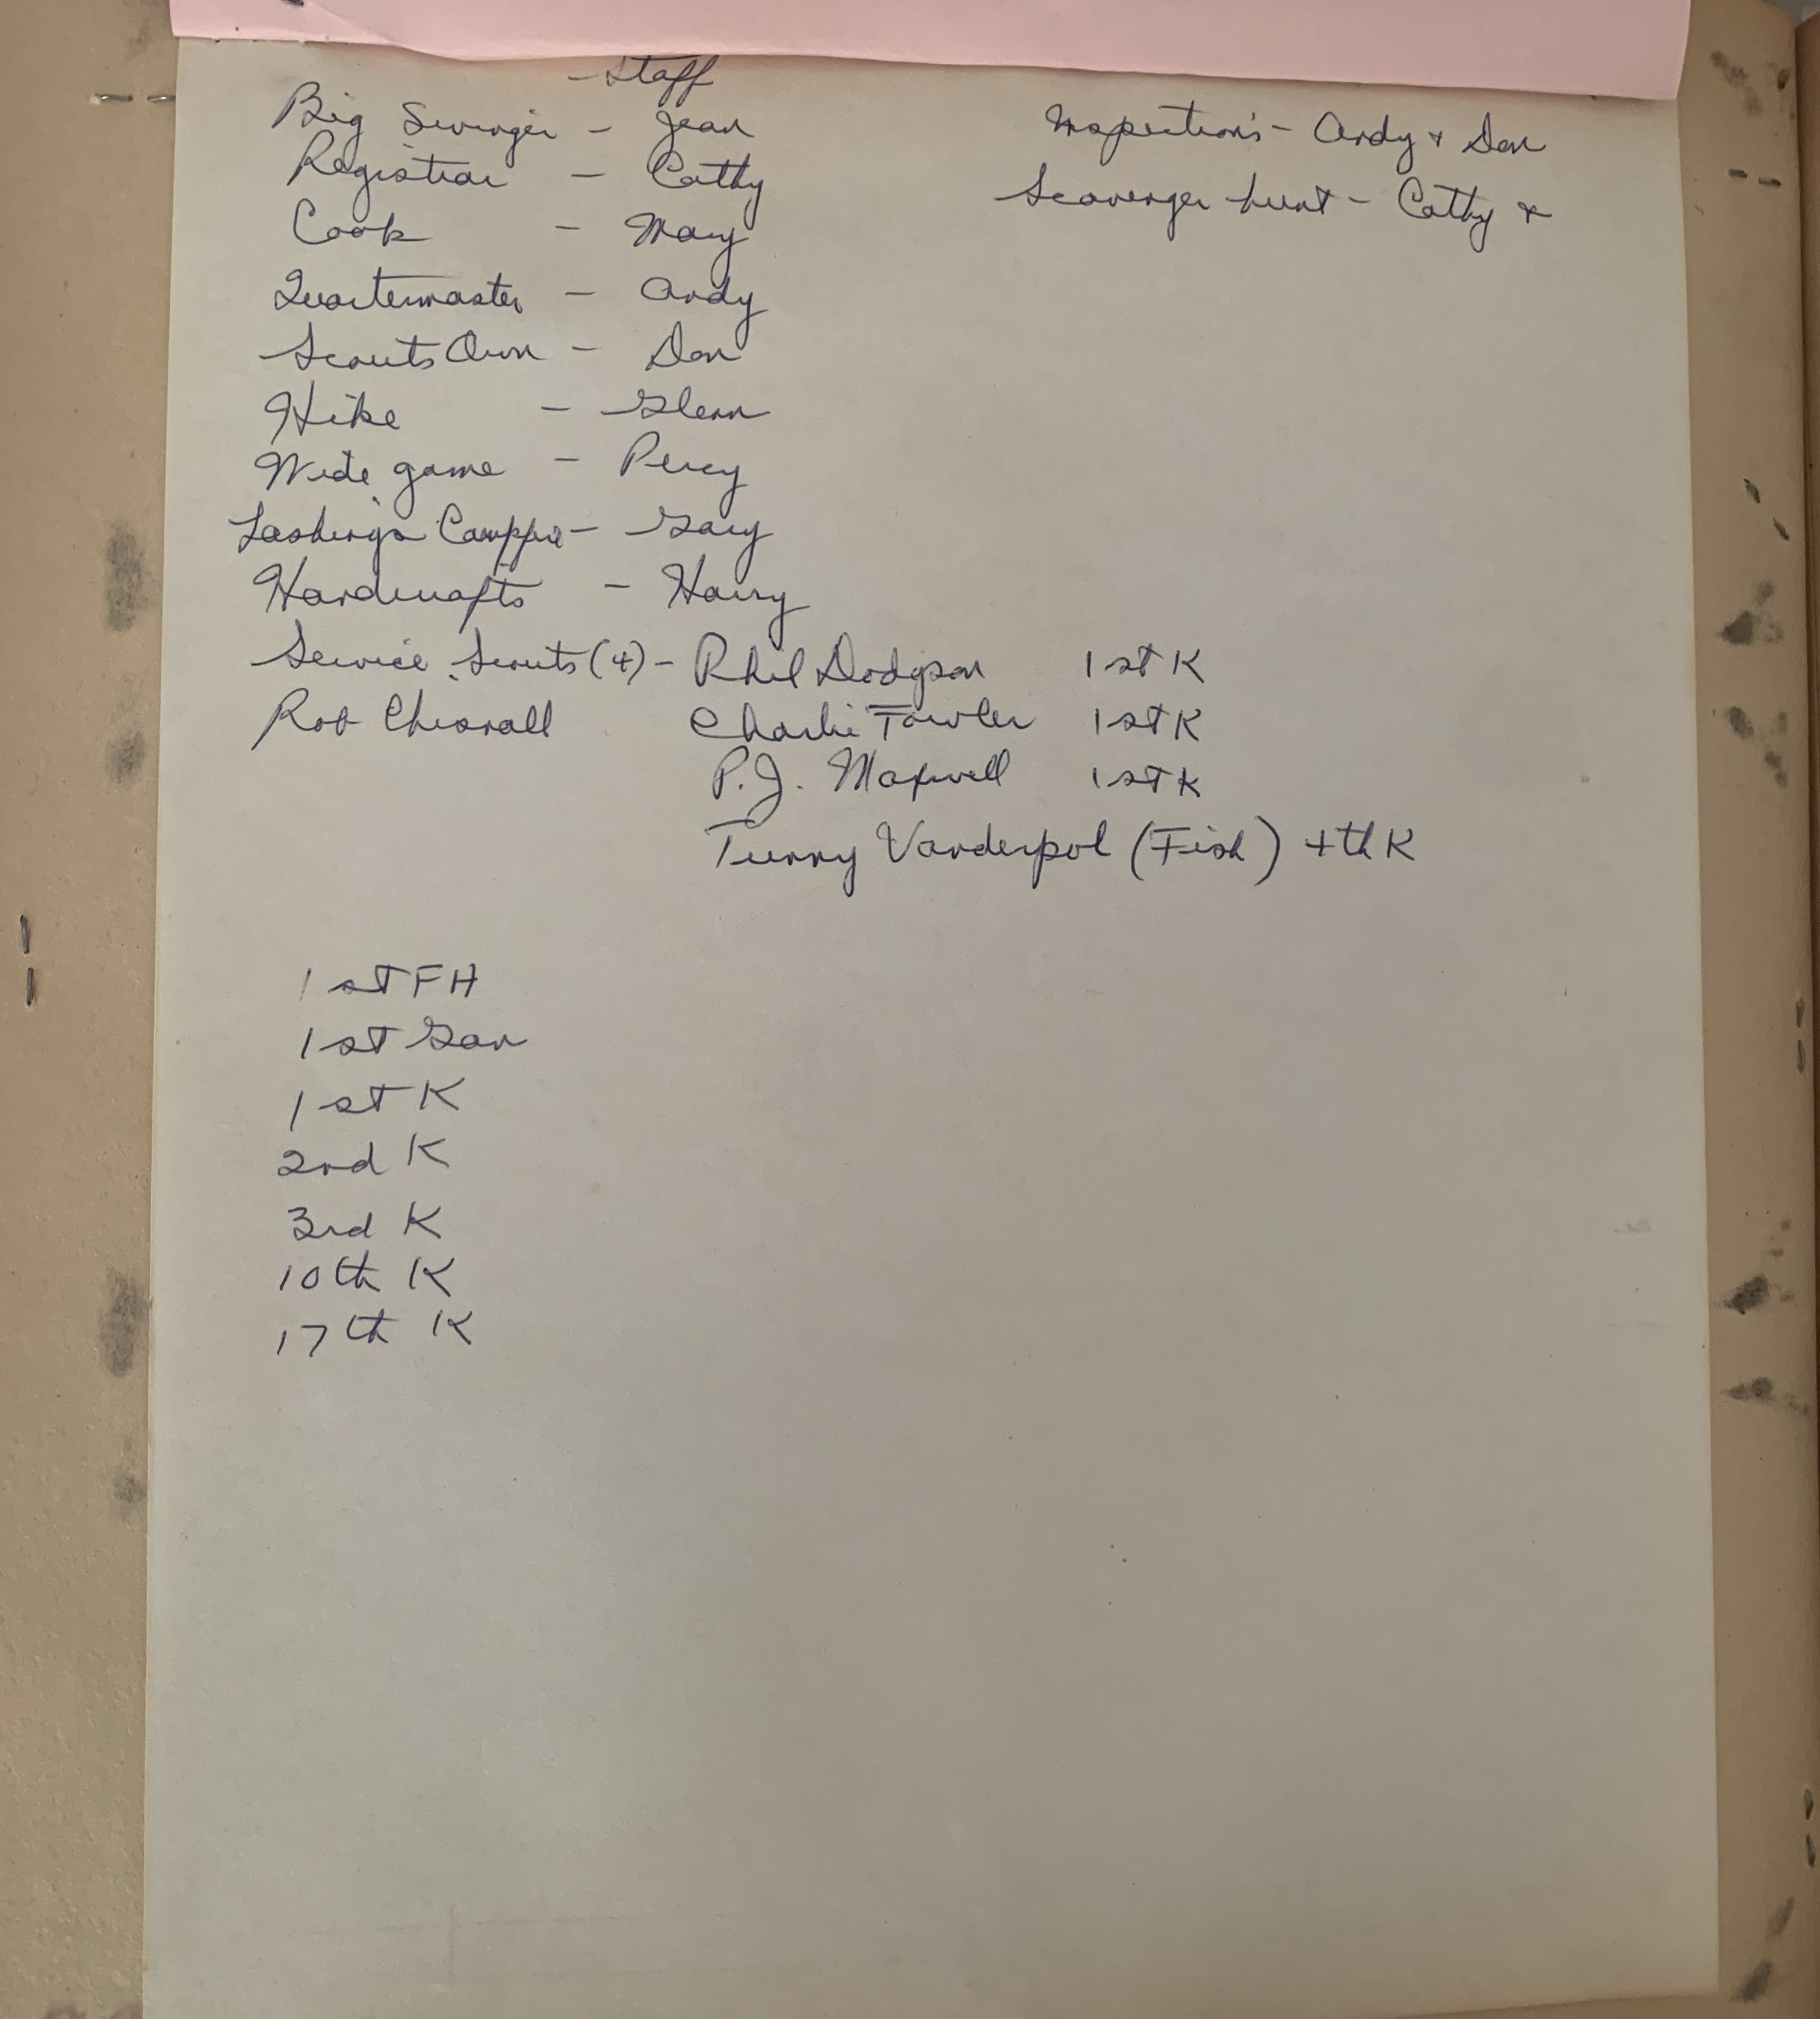 Staff
Big Swinger - Jean
Registrar - Cathy
Cook - Mary
Quartermaster - Andy
Scouts Own - Don
Hike - Glenn
Wide game - Percy
Lashings Campfire - Gary
Handicrafts - Harry
Service Scouts (4) - Phil Dodgson 1st K
Rob Chisnall Charlie Fowler 1st K
P.J. Maxwell 1st K
Vanderpol (Fish) 4th K
Inspections - Andy + Don
Scavenger hunt - Cathy +
1st FH
1st Gan
1st K
2nd K
3rd K
10th K
17th K